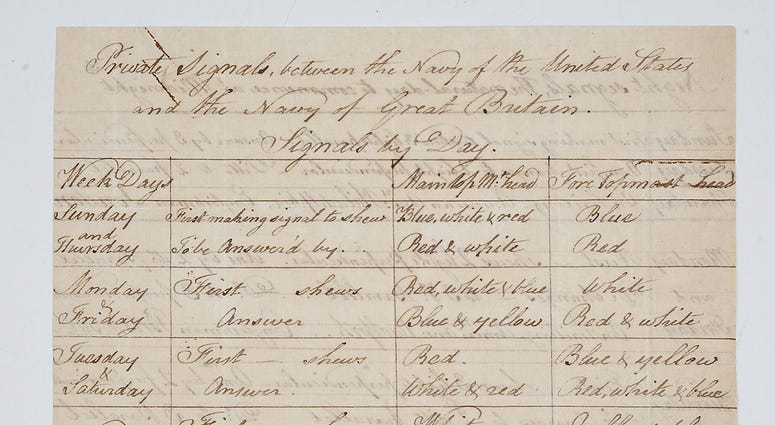 Private Signals, between the Navy of the United States
and the Navy of Great Britain.
Signals by Day.
Week Days Maintop Mt head Fore Topmast head
Sunday First making signal to shew Blue, white & red Blue
and
Thursday To be Answer'd by . . Red & white Red
Monday First — shews Red, white & blue White
&
Friday Answer Blue & yellow Red & white
Tuesday First — shews Red. Blue & yellow
&
Saturday Answer. White & red Red, white & blue